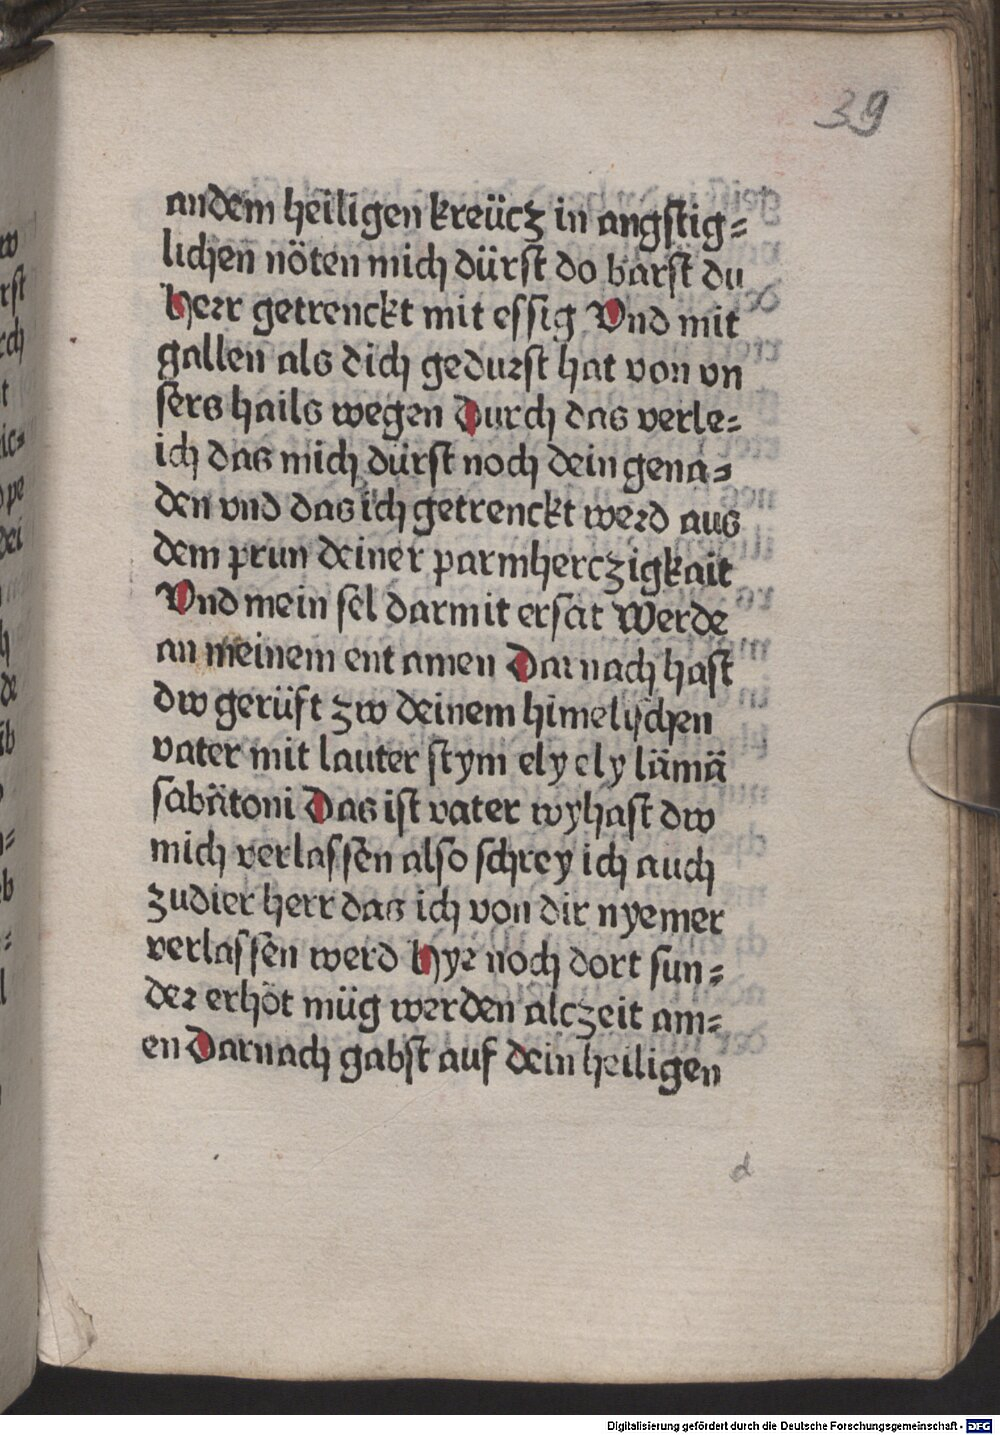 39
andem heiligen kreücz in angstig=
lichen nöten mich dürst do barst du
herr getrenckt mit essig Vnd mit
gallen als dich gedurst hat von vn
sers hails wegen Durch das verle=
ich das mich dürst noch dein gena=
den vnd das ich getrenckt werd aus
dem prun deiner parmherczigkait
Vnd mein sel darmit ersat Werde
an meinem ent amen Darnach hast
dw gerüft zw deinem himelischen
vater mit lauter stym ely ely lämä
sabätoni Das ist vater wyhast dw
mich verlassen also schrey ich auch
zudier herr das ich von dir nyemer
verlassen werd hyr noch dort sun=
der erhöt müg werden alczeit am=
en Darnach gabst auf dein heiligen
d
Digitalisierung gefördert durch die Deutsche Forschungsgemeinschaft - DFG